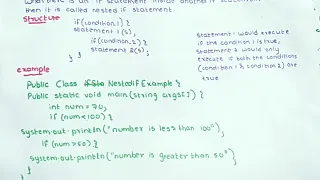 then it is called nested if statement
Structure
if(condition 1) {
statement 1(s);
if(condition 2) {
statement 2(s);
} }
statement 1 would execute
if the condition 1 is true,
statement 2 would only
execute if both the conditions
(condition 1, condition 2) are
true
example
Public Class NestedifExample {
Public static void main(String args[]) {
int num = 70;
if (num<100) {
System.out.println("number is less than 100");
if (num>50) {
System.out.println("number is greater than 50");
}